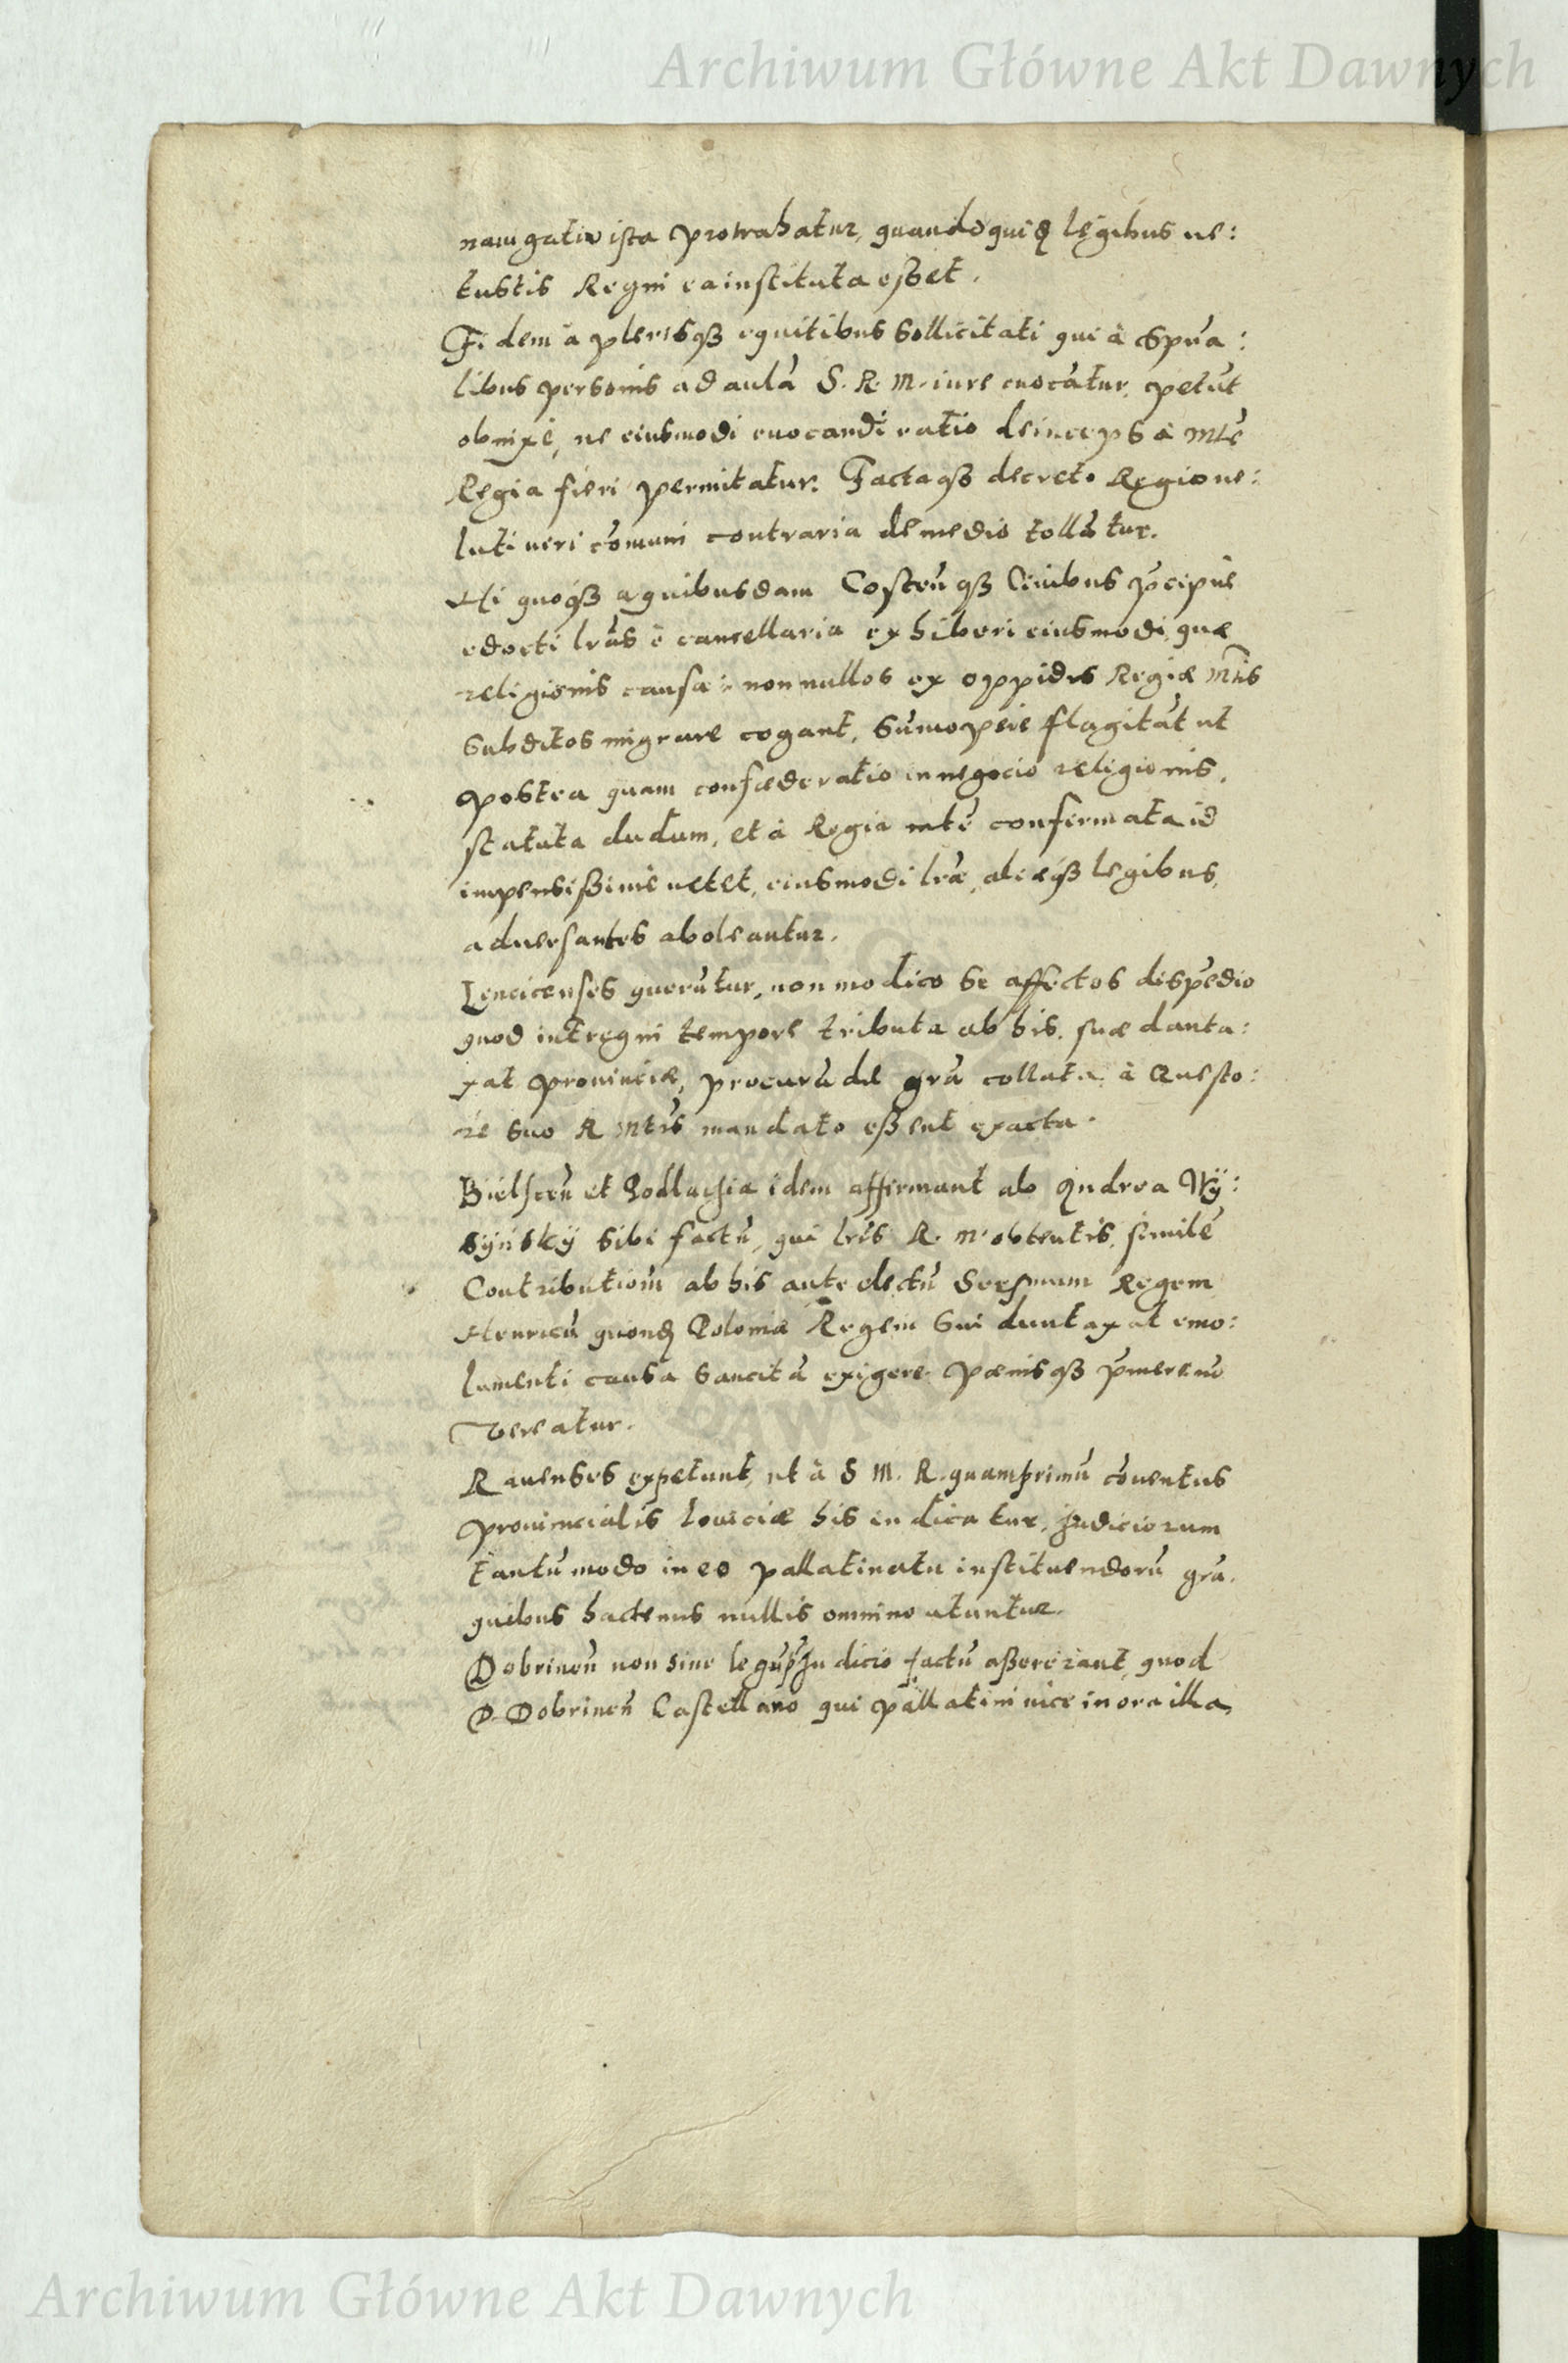 Archiwum Główne Akt Dawnych
nauigatio ista protrahatur, quandoquidẽ legibus ue:
tustis Regni ea instituta eßet.
Fidem à plerisqȝ equitibus sollicitati qui à Spũa:
libus personis ad aulã S. R. M. iure euocãtur, petũt
obnixè, ne eiusmodi euocandi ratio deinceps à Mtẽ
Regia fieri permitatur. Factaqȝ decreto Regio ue:
luti ueri cõmuni contraria de medio tollãtur.
Hi quoqȝ a quibusdam Costeñqȝ Ciuibus p̃cipuè
edocti lrãs è cancellaria exhiberi eiusmodi, quæ
religionis causa nonnullos ex oppidis Regiæ Mtis
subditos migrare cogant, sũmopere flagitãt ut
postea quam confæderatio in negocio religionis,
statuta dudum, et à Regia mtẽ confirmata id
impensißimè uetet, eiusmodi lræ, aliæqȝ legibus,
aduersantes aboleantur.
Lencicenses querũtur, non modico se affectos dispẽdio
quod intr̃egni tempore tributa ab his, suæ dunta:
xat prouinciæ, procurãdæ grã collata, à Quæsto:
re suo R Mtis mandato eßent exacta.
Bielsceñ et Podlachia idem affirmant ab Andrea Wÿ:
sÿńskÿ sibi factũ, qui lrĩs R. M. obtentis, similẽ
Contributionẽ ab his ante electũ Sersmum Regem
Henricũ quondã Poloniæ Regem sui duntaxat emo:
lumenti causa sancitã exigere pænisqȝ p̃mere nõ
vereatur.
Rauenses expetunt, ut à S M. R. quamprimũ cõuentus
prouincialis Louiciæ his indicatur, judiciorum
tantũmodo in eo pallatinatu instituendorũ grã,
quibus hactenus nullis omnino utuntur.
Dobrineñ non sine legũ p̃judicio factũ aßererant, quod
D. Dobrineñ Castellano qui pallatini uice in ora illa
Archiwum Główne Akt Dawnych